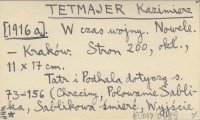 TETMAJER Kazimierz
[1916 a]. W czas wojny. Nowele.
- Kraków. Stron 200, okł.,
11 x 17 cm.
Tatr i Podhala dotyczą s.
73-156 (Chrzciny, Polowanie Sabli-
ka, Sablikowa śmierć, Wyjście